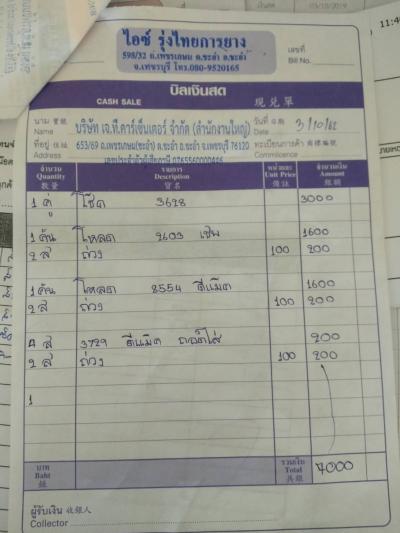 ไอซ์ รุ่งไทยการยาง
598/32 ถ.เพชรเกษม ต.ชะอำ อ.ชะอำ
จ.เพชรบุรี โทร.080-9520165
เลขที่
Bill No.
บิลเงินสด
CASH SALE 現兌單
นาม 寶號
Name
บริษัท เจ.ที.คาร์เซ็นเตอร์ จำกัด (สำนักงานใหญ่)
วันที่ 日期
Date 3/10/62
ที่อยู่ 住址
Address
653/69 ถ.เพชรเกษม(ชะอำ) ต.ชะอำ อ.ชะอำ จ.เพชรบุรี 76120
ทะเบียนการค้า 商標編號
เลขประจำตัวผู้เสียภาษี 0765560000486
จำนวน รายการ หน่วยละ จำนวนเงิน
Quantity Description Unit Price Amount
數量 貨名 備註 銀碼
1 คู่ โช๊ค 3628 3000
1 คัน โหลด 2603 1600
2 ล ถ่วง 100 200
1 คัน โหลด 8554 ดีแม็ก 1600
2 ล ถ่วง 100 200
4 ล 3729 ดีแม็ก ถอดใส่ 200
2 ล ถ่วง 100 200
1
บาท
Baht
銖
รวมเงิน
Total 7000
共銀
ผู้รับเงิน 收銀人
Collector